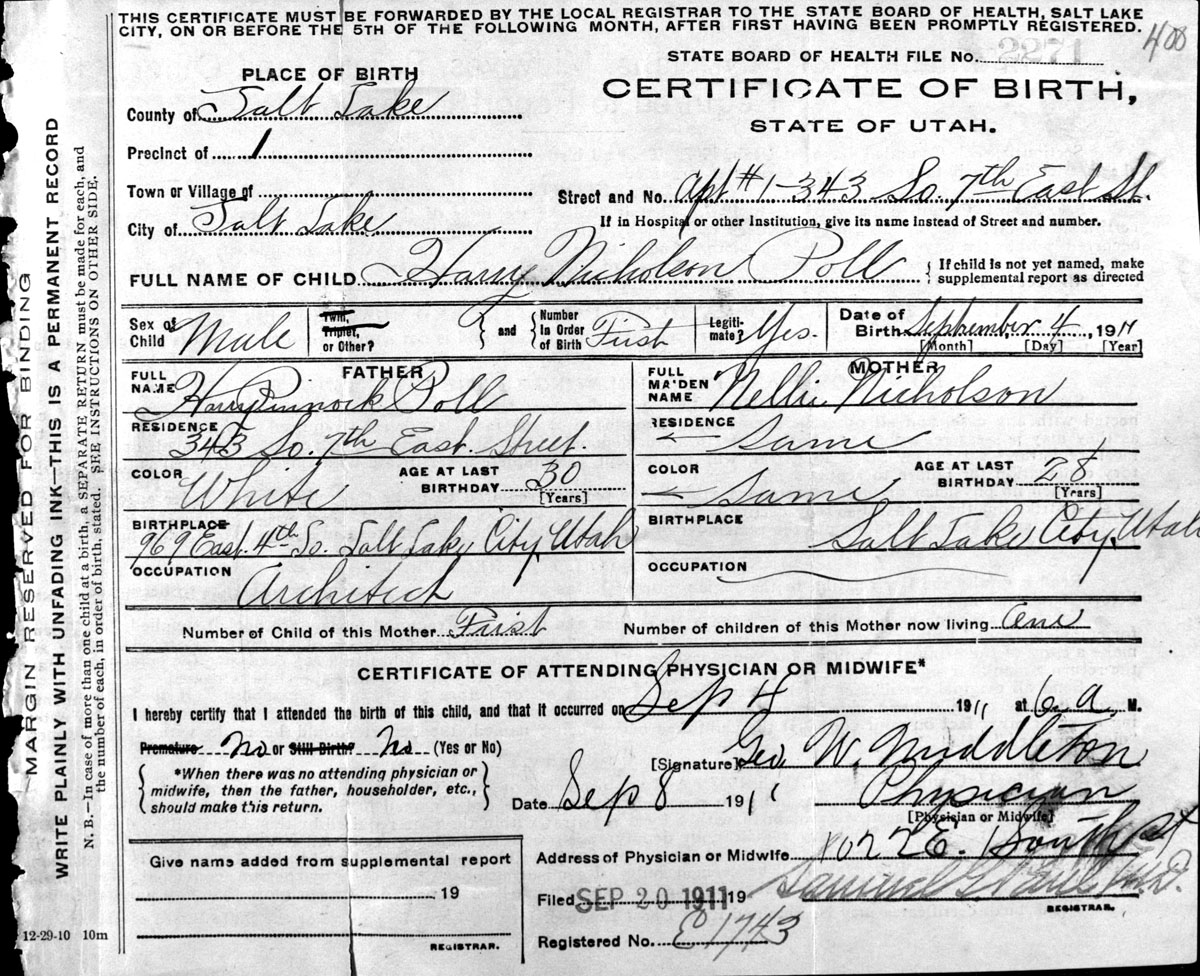 THIS CERTIFICATE MUST BE FORWARDED BY THE LOCAL REGISTRAR TO THE STATE BOARD OF HEALTH, SALT LAKE
CITY, ON OR BEFORE THE 5TH OF THE FOLLOWING MONTH, AFTER FIRST HAVING BEEN PROMPTLY REGISTERED.
400
STATE BOARD OF HEALTH FILE No. 2271
PLACE OF BIRTH
CERTIFICATE OF BIRTH,
STATE OF UTAH.
County of Salt Lake
Precinct of 1
Town or Village of
Street and No. Apt #1-343 So. 7th East St.
City of Salt Lake
If in Hospital or other Institution, give its name instead of Street and number.
FULL NAME OF CHILD Harry Nicholson Poll
{ If child is not yet named, make
supplemental report as directed
Sex of Child Male
Twin, Triplet, or Other?
and
Number In Order of Birth First
Legiti-mate? Yes.
Date of Birth September 4 1911
[Month] [Day] [Year]
FATHER
FULL NAME Harry Pinnock Poll
RESIDENCE 343 So. 7th East Street.
COLOR White
AGE AT LAST BIRTHDAY 30
[Years]
BIRTHPLACE
969 East. 4th So. Salt Lake City, Utah
OCCUPATION Architect
MOTHER
FULL MAIDEN NAME Nellie Nicholson
RESIDENCE Same
COLOR Same
AGE AT LAST BIRTHDAY 28
[Years]
BIRTHPLACE Salt Lake City, Utah
OCCUPATION
Number of Child of this Mother First
Number of children of this Mother now living One
CERTIFICATE OF ATTENDING PHYSICIAN OR MIDWIFE*
I hereby certify that I attended the birth of this child, and that it occurred on Sep 4 1911 at 6 a. M.
Premature No or Still-Birth? No (Yes or No)
[Signature] Geo W. Middleton
*When there was no attending physician or
midwife, then the father, householder, etc.,
should make this return.
Date Sep 8 1911
Physician
[Physician or Midwife]
Give name added from supplemental report
19
REGISTRAR.
Address of Physician or Midwife E. South St
Filed SEP 20 1911 19
Samuel G. Paul M.D.
REGISTRAR.
Registered No. E1743
12-29-10 10m
MARGIN RESERVED FOR BINDING
WRITE PLAINLY WITH UNFADING INK—THIS IS A PERMANENT RECORD
N. B.—In case of more than one child at a birth, a SEPARATE RETURN must be made for each, and
the number of each, in order of birth, stated. SEE INSTRUCTIONS ON OTHER SIDE.